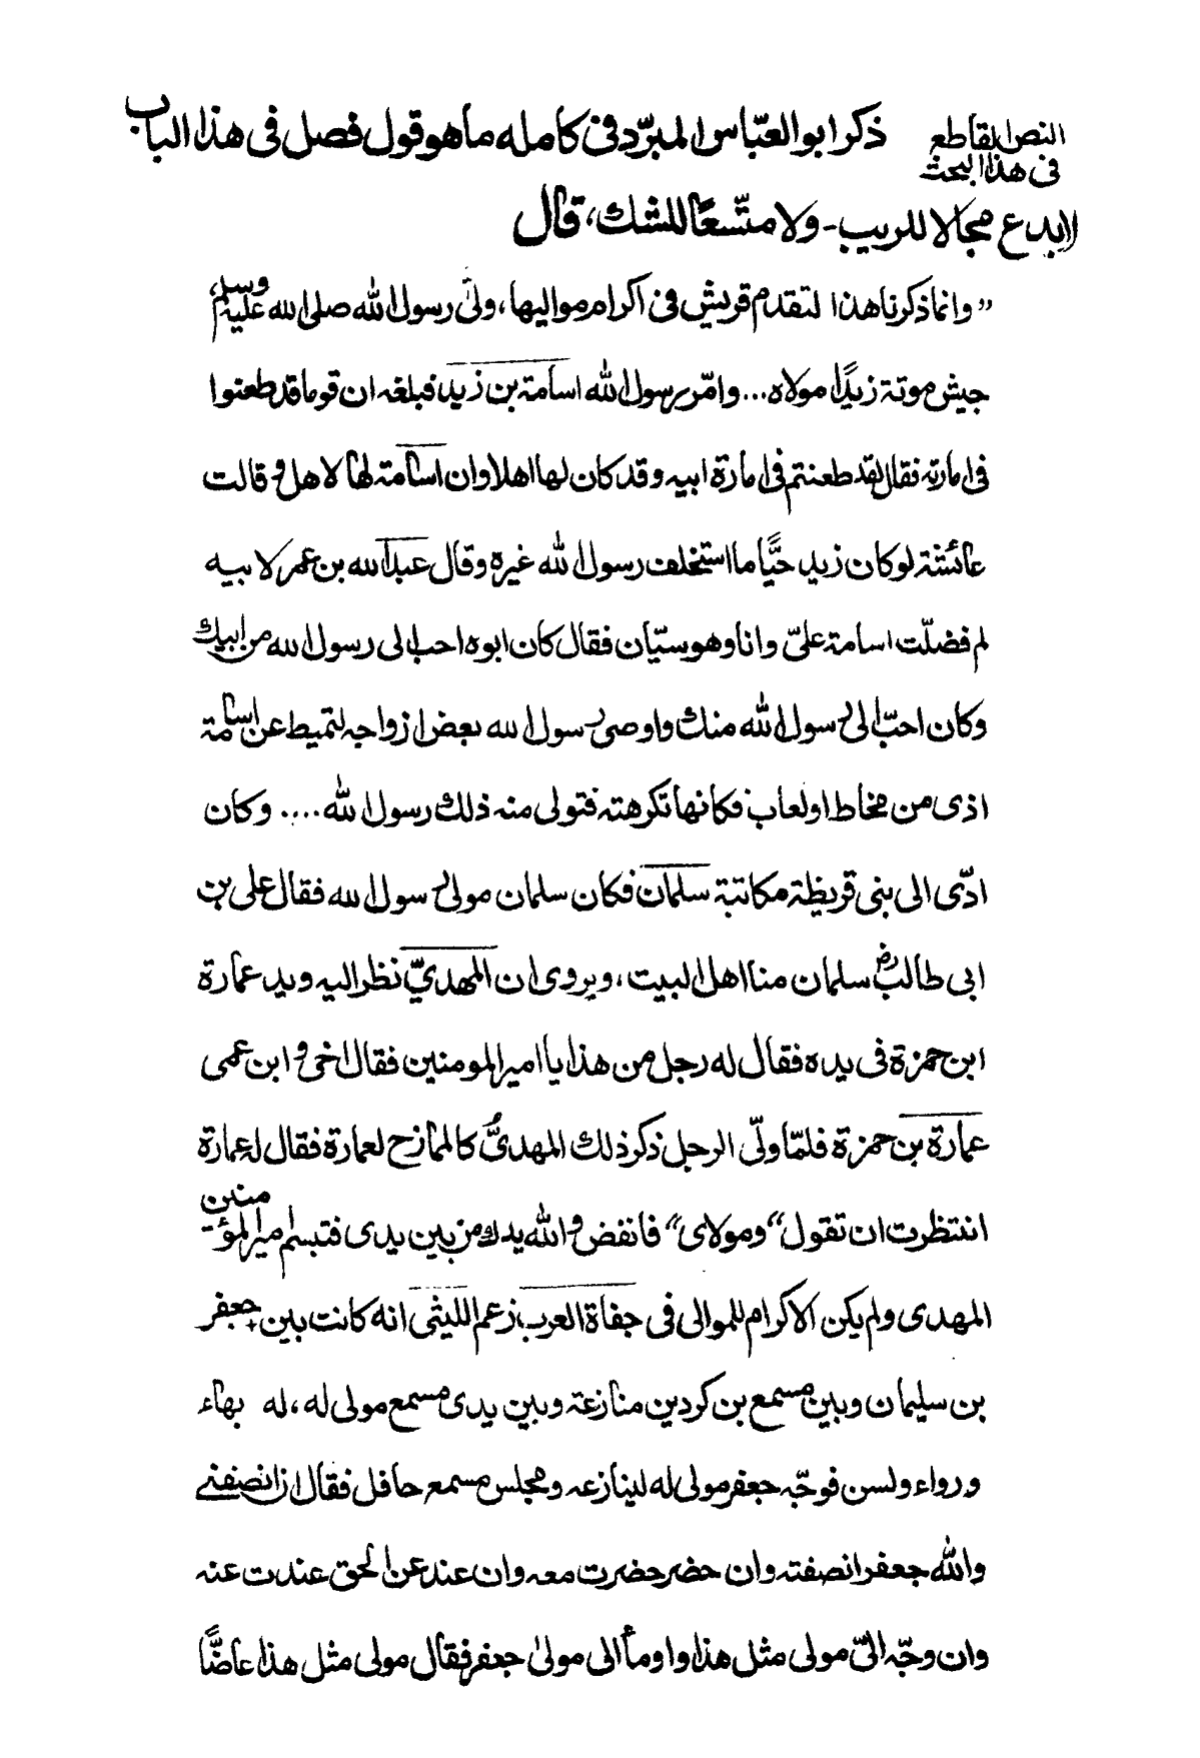 النص القاطع
فى هذا البحث
ذكر ابو العبّاس المبرّد فى كامله ما هو قول فصل فى هذا الباب
لا يدع مجالا للريب - ولا متّسعًا للشك، قال
” وانما ذكرنا هذا لتقدم قريش فى اكرام مواليها، ولّى رسول الله صلى الله عليه وسلم
جيش موتة زيدًا مولاه... وامّر رسول الله اسامة بن زيد فبلغه ان قوما قد طعنوا
فى امارته فقال لقد طعنتم فى امارة ابيه وقد كان لها اهلا وان اسامة لها لاهل وقالت
عائشة لوكان زيد حيًّا ما استخلف رسول الله غيره وقال عبد الله بن عمر لابيه
لم فضلّت اسامة علىّ وانا وهو سيّان فقال كان ابوه احب الى رسول الله من ابيك
وكان احبّ الى رسول الله منك واوصى رسول الله بعض ازواجه لتميط عن اسامة
اذى من مخاط او لعاب فكانها تكرهته فتولى منه ذلك رسول الله .... وكان
ادّى الى بنى قريظة مكاتبة سلمان فكان سلمان مولى رسول الله فقال على بن
ابى طالب رض سلمان منا اهل البيت، ويروى ان المهدىّ نظر اليه ويد عمارة
ابن حمزة فى يده فقال له رجل من هذا يا امير المومنين فقال اخى و ابن عمى
عمارة بن حمزة فلمّا ولّى الرجل ذكر ذلك المهدىُّ كالمازح لعمارة فقال له عمارة
انتظرت ان تقول “ومولاى” فانفض والله يدك من بين يدى فتبسم امير المؤمنين
المهدى ولم يكن الاكرام للموالى فى جفاة العرب زعم الليثى انه كانت بين جعفر
بن سليمان وبين مسمع بن كردين منازعة وبين يدى مسمع مولى له، له بهاء
ورواء ولسن فوجّه جعفر مولى له لينازعه ومجلس مسمع حافل فقال ان انصفنى
والله جعفر انصفته وان حضر حضرت معه وان عند عن الحق عندت عنه
وان وجّه الىّ مولى مثل هذا واومأ الى مولىٰ جعفر فقال مولى مثل هذا عاضًّا